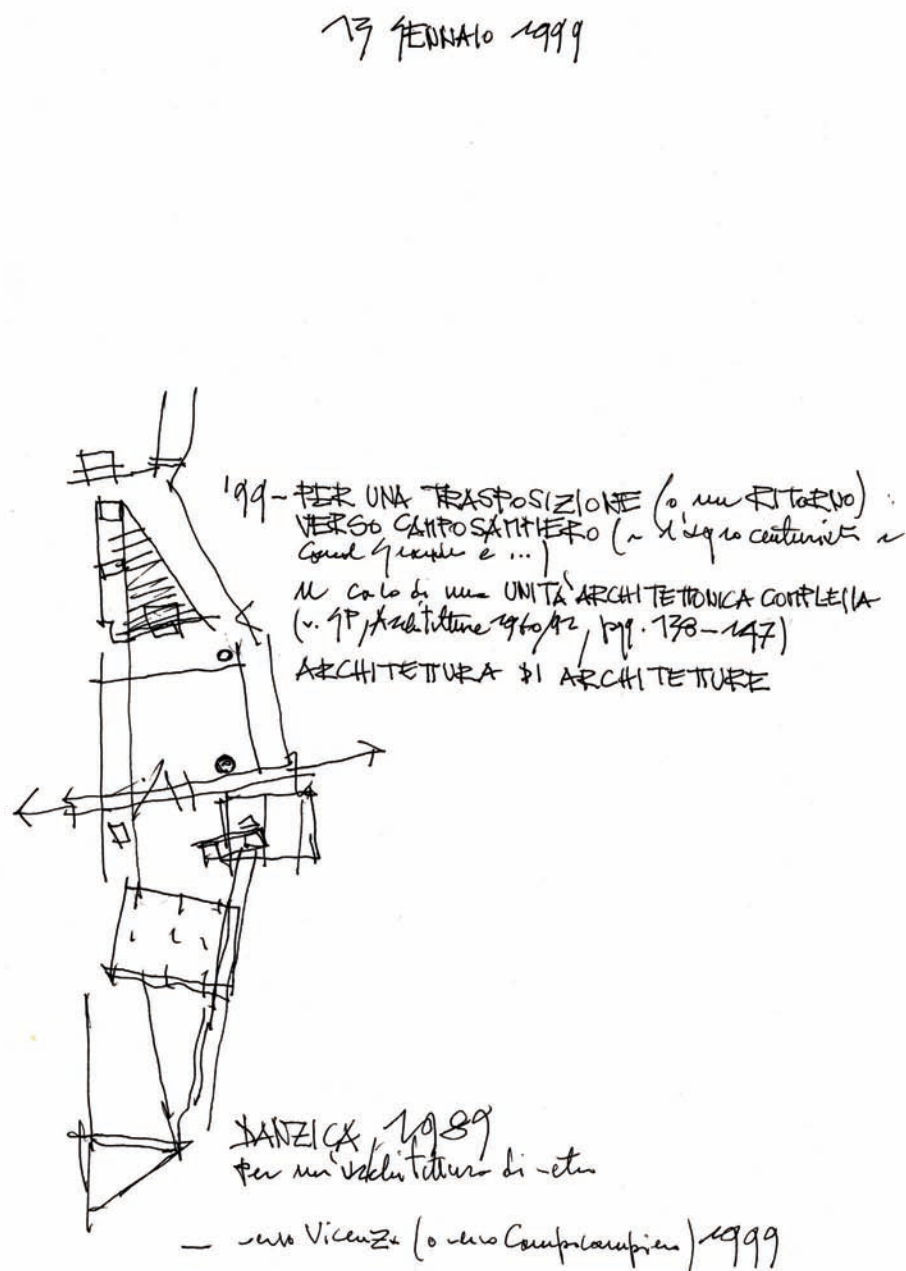 13 GENNAIO 1999
'99 - PER UNA TRASPOSIZIONE (o un RITORNO)
VERSO CAMPOSAMPIERO (
e ...)
caso di una UNITÀ ARCHITETTONICA COMPLESSA
(v. GP, Architetture 1960/92, pgg. 138-147)
ARCHITETTURA DI ARCHITETTURE
DANZICA, 1989
per un'architettura di
— verso Vicenza (o verso Camposampiero) 1999